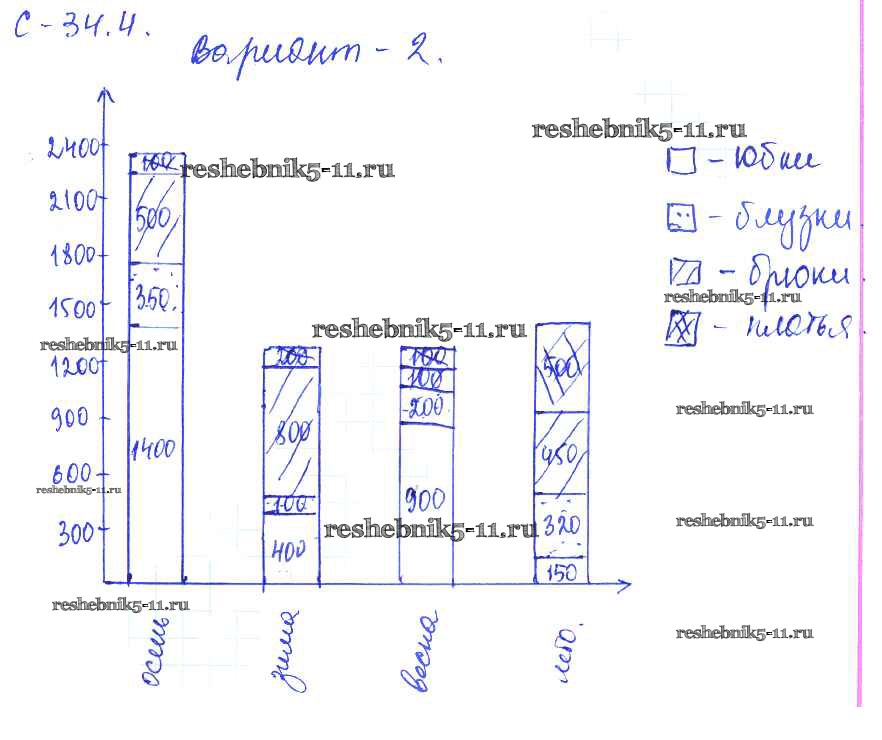 С-34.4.
Вариант-2.
2400
2100
1800
1500
1200
900
600
300
100
500
350
1400
200
800
100
400
100
100
200
900
500
450
320
150
осень
зима
весна
лето.
- юбки
- блузки.
- брюки.
- платья.
reshebnik5-11.ru
reshebnik5-11.ru
reshebnik5-11.ru
reshebnik5-11.ru
reshebnik5-11.ru
reshebnik5-11.ru
reshebnik5-11.ru
reshebnik5-11.ru
reshebnik5-11.ru
reshebnik5-11.ru
reshebnik5-11.ru